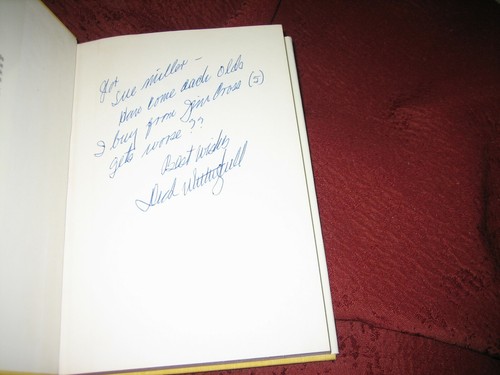 For
Sue Miller -
How come each Olds
I buy from Jim Cross (5)
gets worse??
Best Wishes
Dick Whittinghill